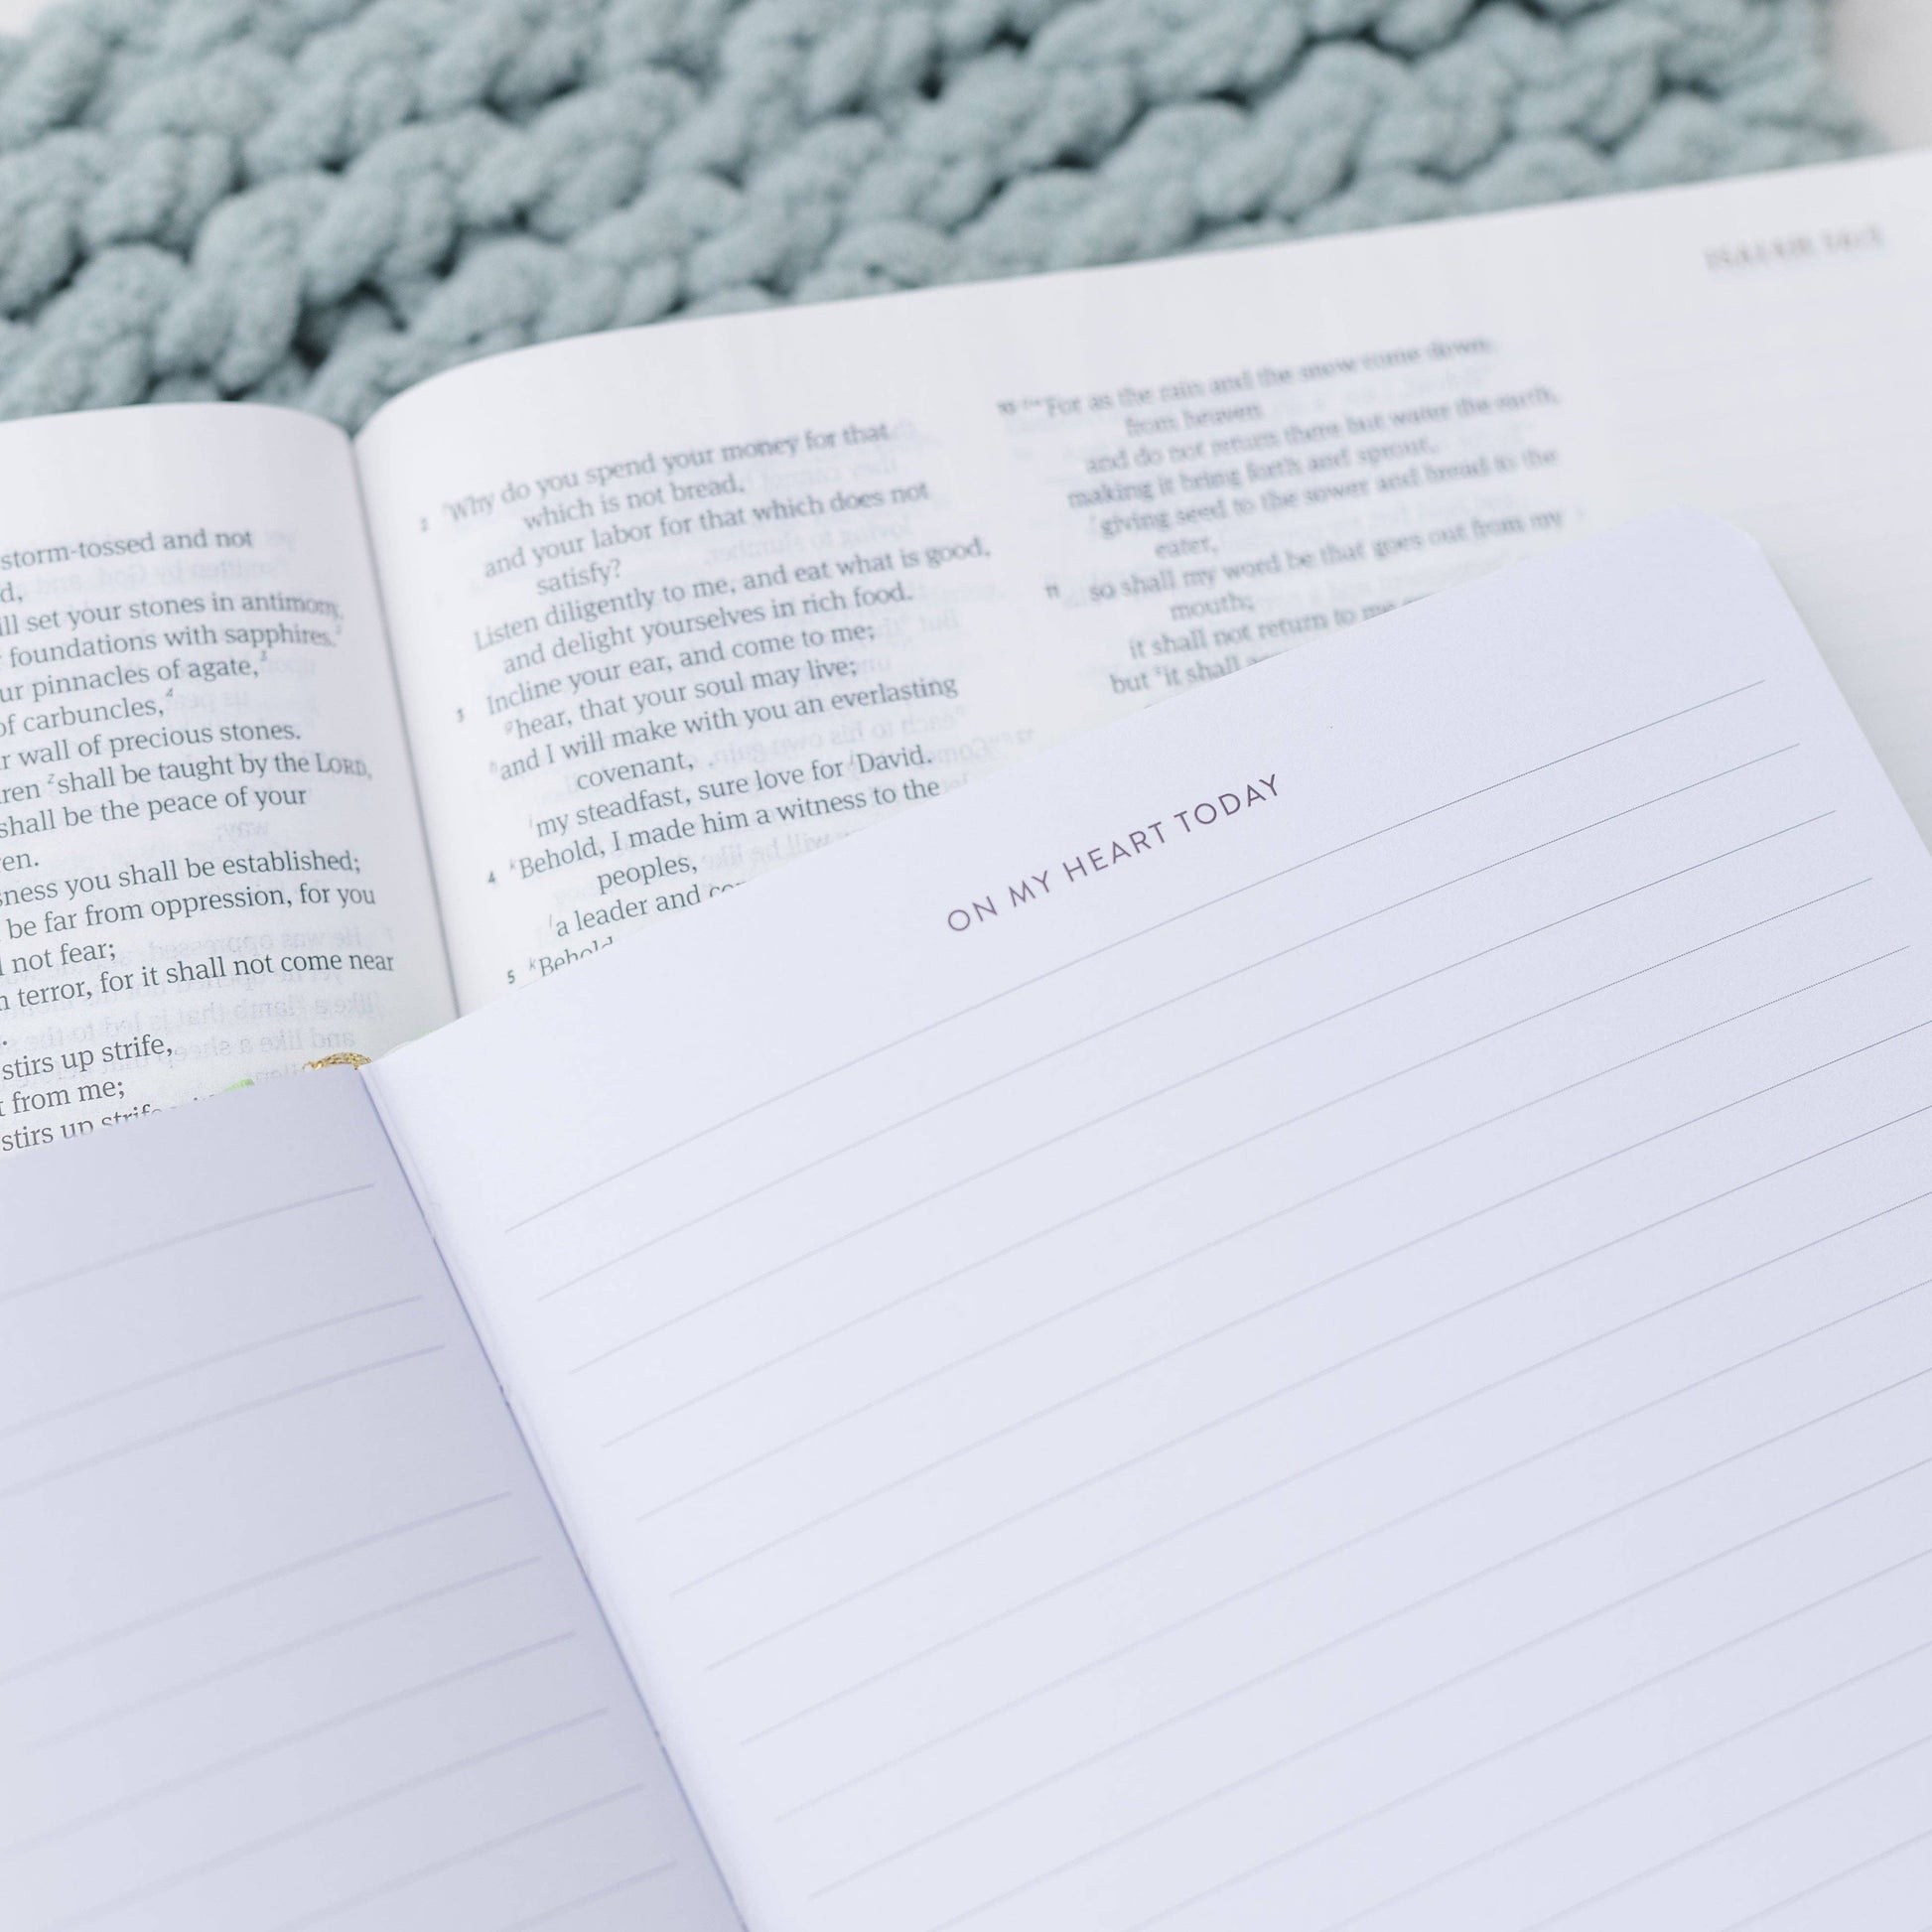 storm-tossed and not
d,
ill set your stones in antimony,
foundations with sapphires.²
ur pinnacles of agate,³
of carbuncles,⁴
r wall of precious stones.
ren ᶻshall be taught by the LORD,
shall be the peace of your
en.
ness you shall be established;
be far from oppression, for you
not fear;
terror, for it shall not come near
stirs up strife,
from me;
stirs up strife
2 Why do you spend your money for that
which is not bread,
and your labor for that which does not
satisfy?
Listen diligently to me, and eat what is good,
and delight yourselves in rich food.
3 Incline your ear, and come to me;
ᵍhear, that your soul may live;
ʰand I will make with you an everlasting
covenant,
ⁱmy steadfast, sure love for ʲDavid.
4 ᵏBehold, I made him a witness to the
peoples,
ˡa leader and
5 ᵏBehold
ISAIAH
10 For as the rain and the snow come down
from heaven
and do not return there but water the earth,
making it bring forth and sprout,
giving seed to the sower and bread to the
eater,
11 so shall my word be that goes out from my
mouth;
it shall not return to me
but it shall
ON MY HEART TODAY